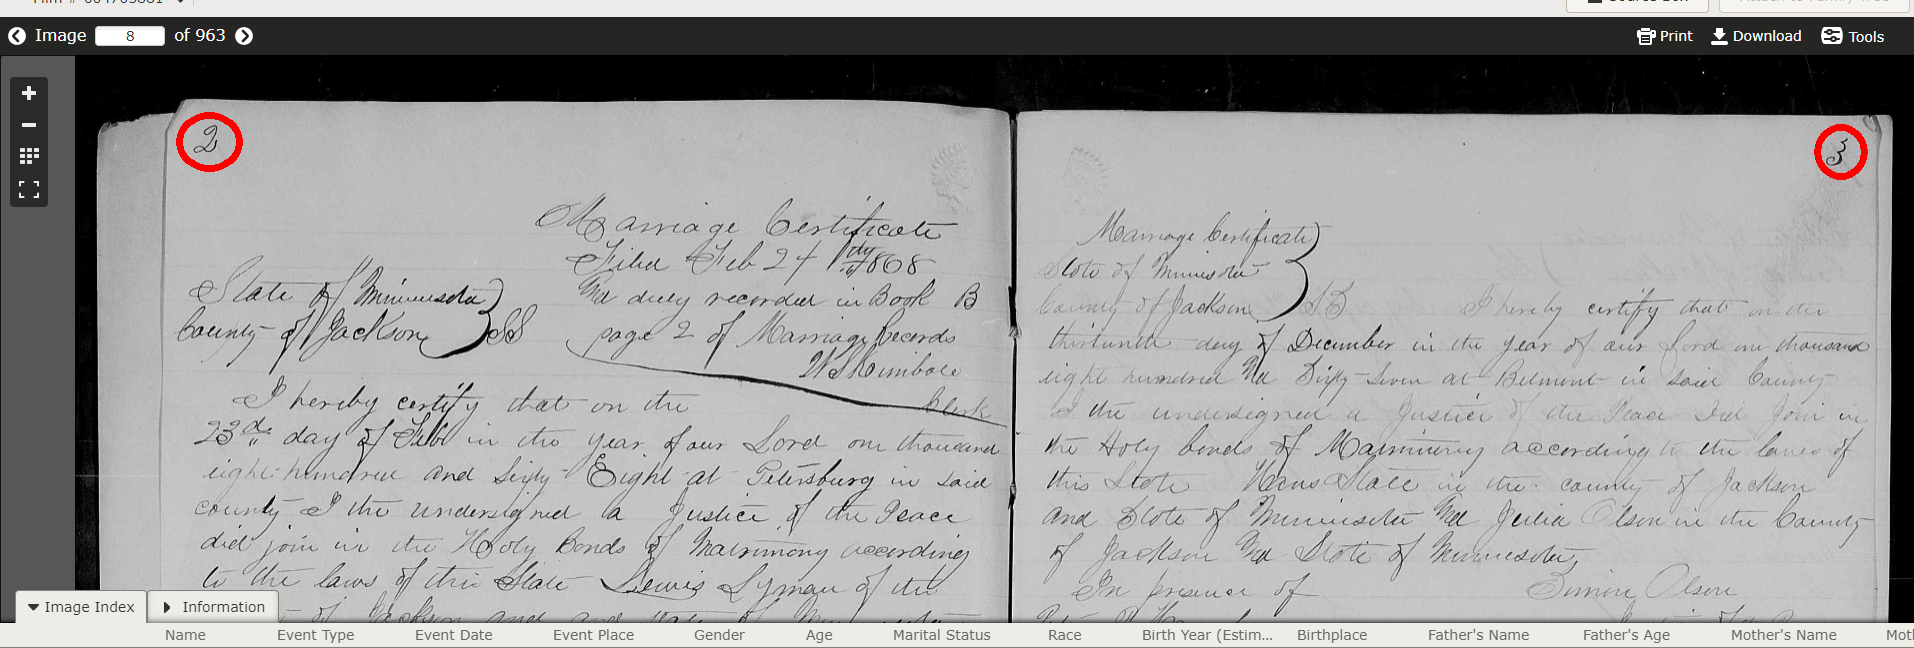 Image 8 of 963
Print Download Tools
2
Marriage Certificate
Filed Feb 24 1868
State of Minnesota
County of Jackson SS
And duly recorded in Book B
page 2 of Marriage Records
Clerk
I hereby certify that on the
23d day of Feb in the year of our Lord one thousand
eight hundred and Sixty Eight at Petersburg in said
county I the undersigned a Justice of the Peace
did join in the Holy Bonds of Matrimony according
to the laws of this State Lewis Lyman of the
of Jackson and
3
Marriage Certificate
State of Minnesota
County of Jackson SS I hereby certify that on the
thirtenth day of December in the year of our Lord one thousand
eight hundred And Sixty Seven at Belmont in said County
I the undersigned a Justice of the Peace Did Join in
the Holy bonds of Matrimony according to the laws of
this State Hans State in the county of Jackson
and State of Minnesota And Julia Olson in the County
of Jackson And State of Minnesota
In presence of
Olson
Image Index Information
Name Event Type Event Date Event Place Gender Age Marital Status Race Birth Year (Estim... Birthplace Father's Name Father's Age Mother's Name